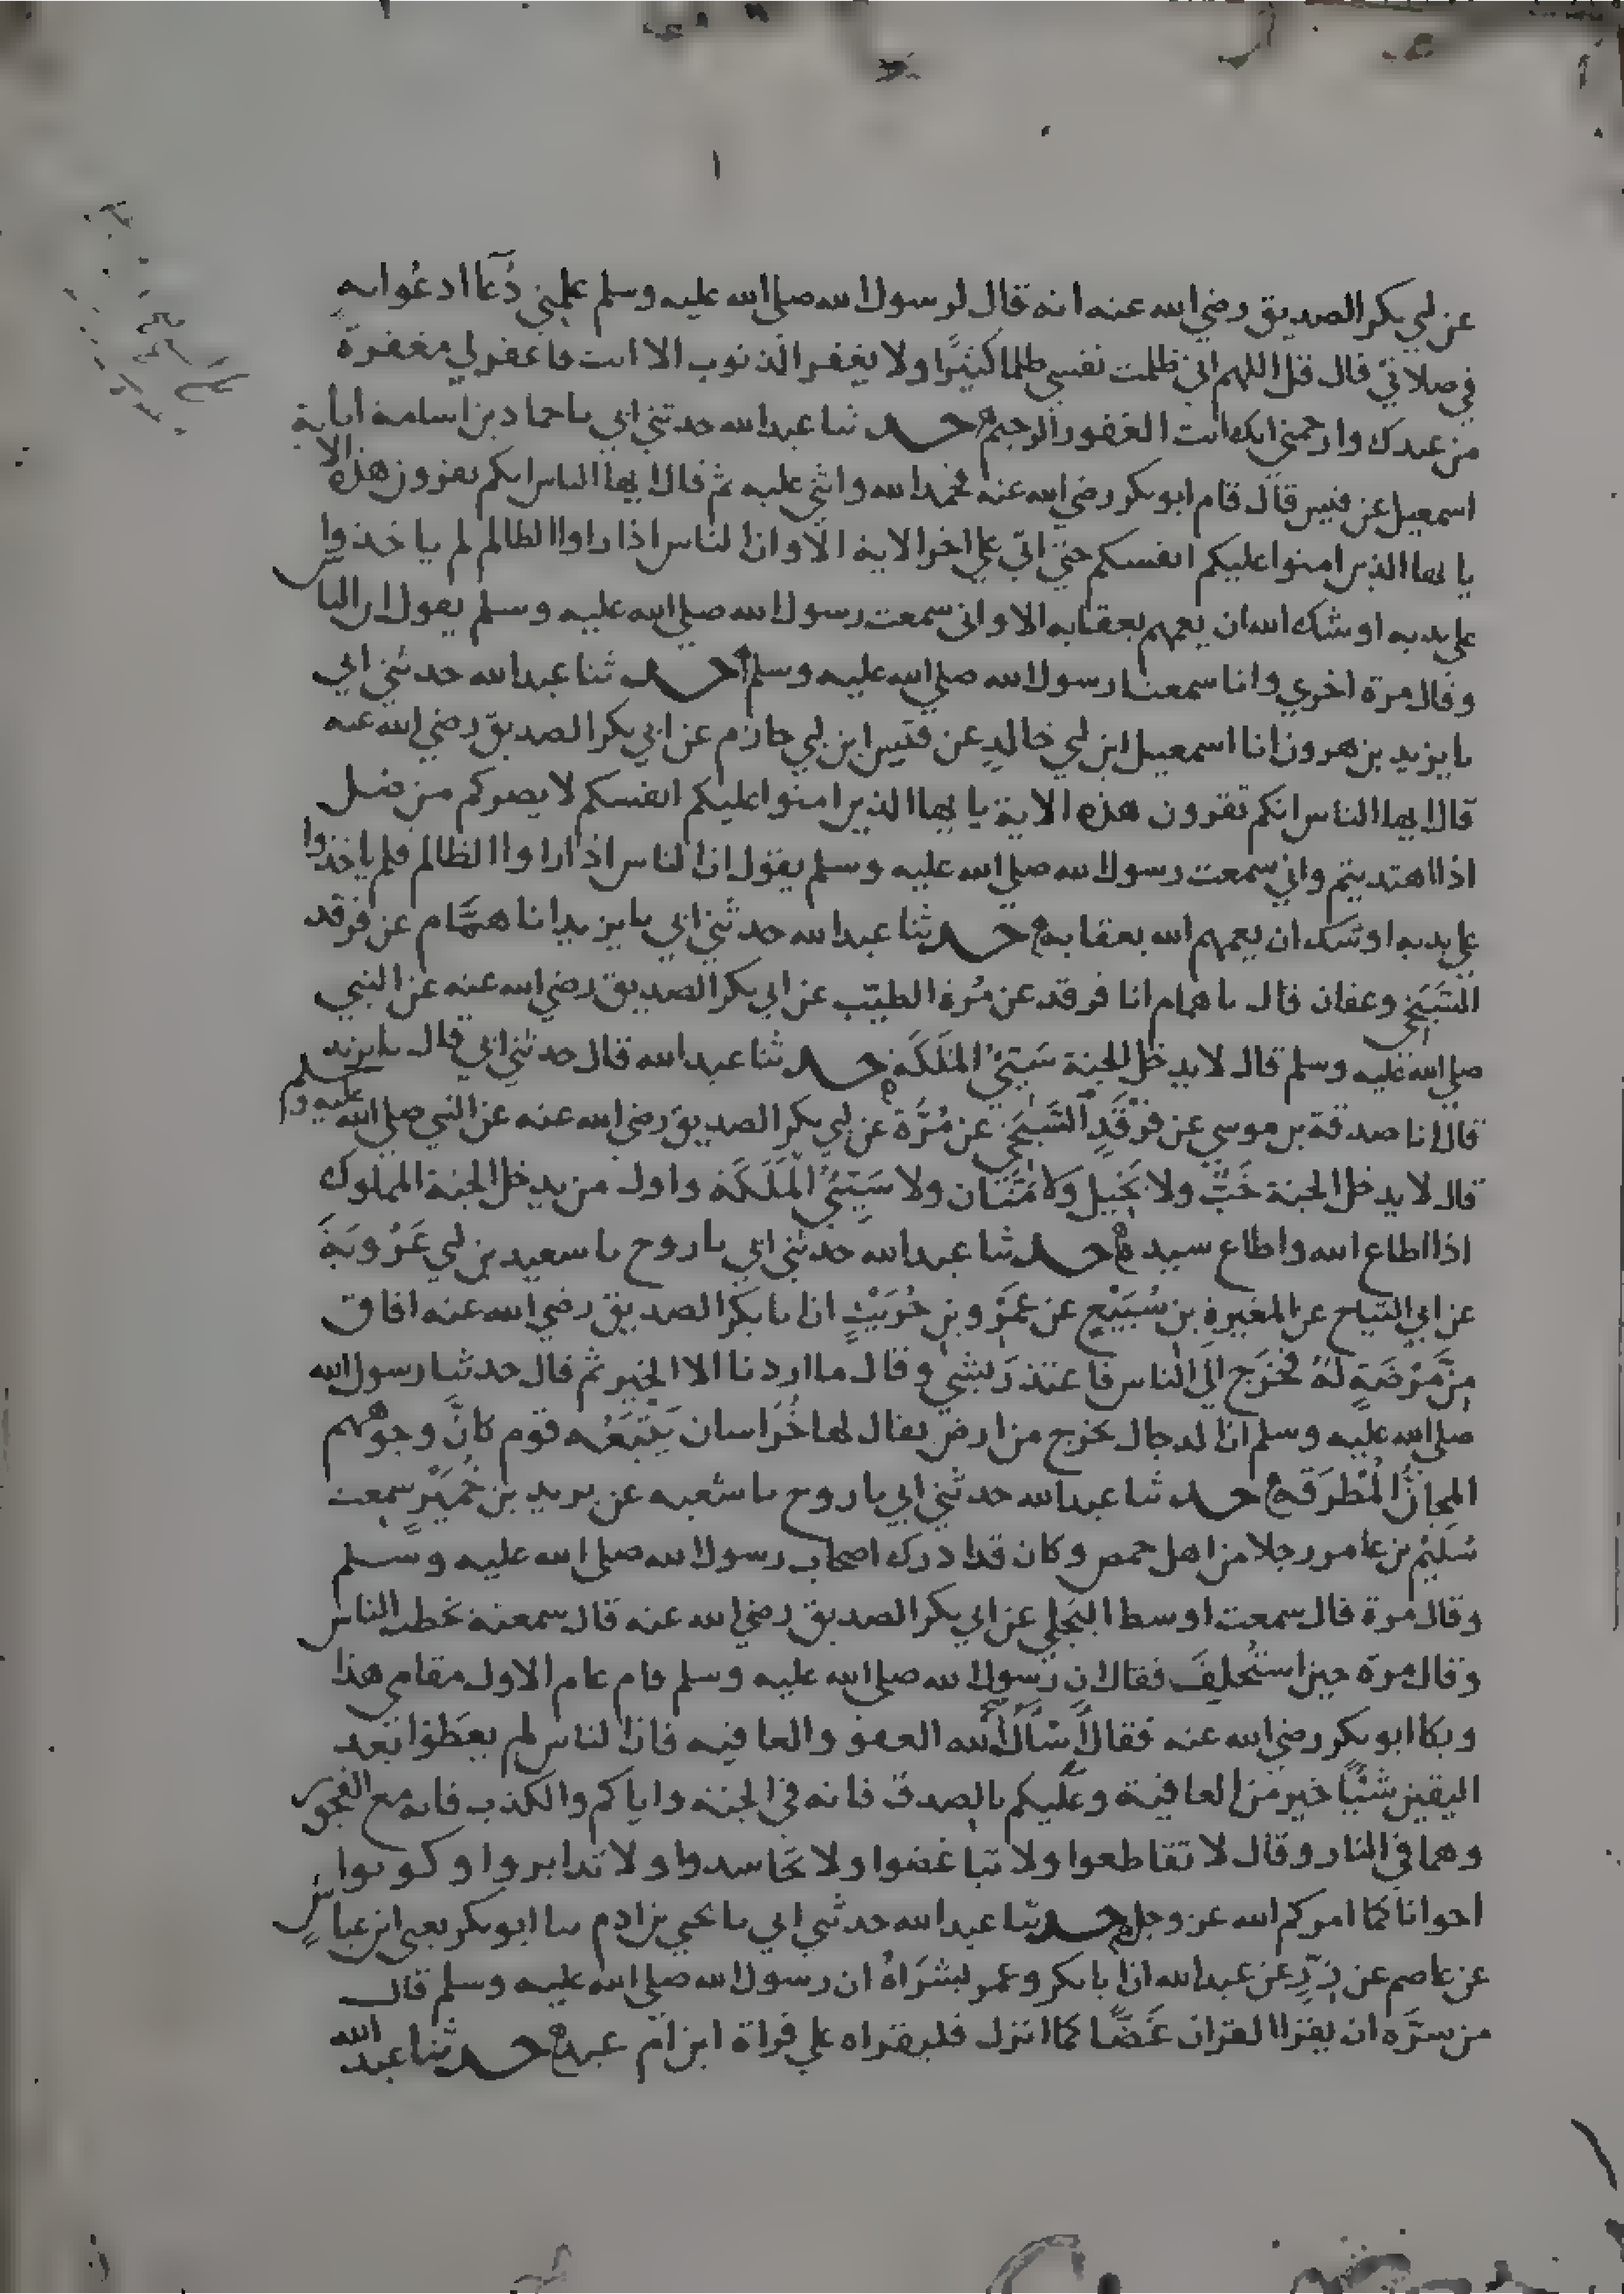 عن ابي بكر الصديق رضي الله عنه انه قال لرسول الله صلى الله عليه وسلم علمني دُعآا ادعُوا به
في صلاتي قال قل اللهم اني ظلمت نفسي ظلما كثيرًا ولا يغفر الذنوب الا انت فاغفر لي مغفرة
من عندك وارحمني انك انت الغفور الرحيم حدثنا عبد الله حدثني ابي نا حماد بن اسامة انا
اسمعيل عن قيس قال قام ابو بكر رضي الله عنه فحمد الله واثنى عليه ثم قال ايها الناس انكم تقرون هذه الاية
يا ايها الذين امنوا عليكم انفسكم حتى اتى على اخر الاية الا وان الناس اذا راوا الظالم لم ياخذوا
على يديه اوشك الله ان يعمهم بعقابه الا واني سمعت رسول الله صلى الله عليه وسلم يقول ان الناس
وقال مرة اخري وانا سمعنا رسول الله صلى الله عليه وسلم حدثنا عبد الله حدثني ابي
نا يزيد بن هرون انا اسمعيل ابن ابي خالدٍ عن قيس ابن ابي حازم عن ابي بكر الصديق رضي الله عنه
قال ايها الناس انكم تقرون هذه الاية يا ايها الذين امنوا عليكم انفسكم لا يضركم من ضل
اذا اهتديتم واني سمعت رسول الله صلى الله عليه وسلم يقول ان الناس اذا راوا الظالم فلم ياخذوا
على يديه اوشك ان يعمهم الله بعقابه حدثنا عبد الله حدثني ابي نا يزيد انا همَّام عن فرقد
السَّبَخي وعفان قال نا همام انا فرقد عن مُرة الطيّب عن ابي بكر الصديق رضي الله عنه عن النبي
صلى الله عليه وسلم قال لا يدخل الجنة سَيّئُ المَلَكَة حدثنا عبد الله قال حدثني ابي قال نا يزيد
قال انا صدقة بن موسي عن فَرْقَدٍ السَّبَخي عن مُرَّة عن ابي بكر الصديق رضي الله عنه عن النبي صلى الله عليه وسلم
قال لا يدخل الجنة خَبٌّ ولا بَخيل وَلا مَنَّان ولا سَيّئُ المَلَكَة واول من يدخل الجنة المملوك
اذا اطاع الله واطاع سيده حدثنا عبد الله حدثني ابي نا روح نا سعيد بن ابي عَرُوبَةَ
عن ابي التياح عن المغيرة بن سُبَيْعٍ عن عَمْرو بن حُرَيْثٍ ان ابا بكر الصديق رضي الله عنه افاق
مِن مَرْضَةٍ لهُ فخَرَج اِلَى الناس فاعتذرَ بشي وقال ما اردنا الا الخير ثم قال حدثنا رسول الله
صلى الله عليه وسلم ان الدجال يخرج من ارض يقال لها خُرَاسان يَتْبَعُه قوم كانَّ وجوههم
المجانُّ المُطْرَقَة حدثنا عبد الله حدثني ابي نا روح نا شعبه عن يزيد بن خُمَيْرٍ سمعت
سُلَيْم بن عامر رجلا من اهل حمص وكان قد ادرك اصحاب رسول الله صلى الله عليه وسلم
وقال مرة قال سمعت اوسط البَجَلي عن ابي بكر الصديق رضي الله عنه قال سمعته يخطب الناس
وقال مرة حين استُخلِفَ فقال ان رسول الله صلى الله عليه وسلم قام عام الاول مقامي هذا
وبكا ابو بكر رضي الله عنه فقال اَسْاَلُ الله العفو والعافيه فان الناس لم يعطَوْا بَعد
اليقين شَيْاً خير من العافية وعليكم بالصدق فانه في الجنة واياكم والكذب فانه مع الفجور
وهما في النار وقال لا تقاطعوا ولا تباغضوا ولا تحاسدوا ولا تدابروا وكونوا
اخوانا كما امركم الله عز وجل حدثنا عبد الله حدثني ابي نا يحيى بن ادم نا ابو بكر يعني ابن عياشٍ
عن عاصم عن زِرٍّ عن عبد الله ان ابا بكر وعمر بشرَاهُ ان رسول الله صلى الله عليه وسلم قال
من سرَّه ان يقرا القران غَضًّا كما انزل فليقراه على قراة ابن ام عبد حدثنا عبد الله